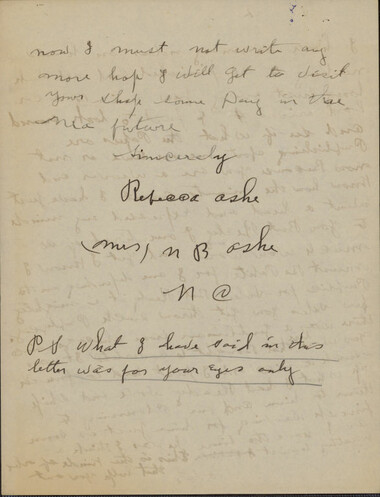 now I must not write any
more hop I will get to visit
your shop some Day in the
Nea future
Sincerely
Rebecca ashe
(mrs) N B ashe
N @
PS What I have said in this
letter was for your eyes only